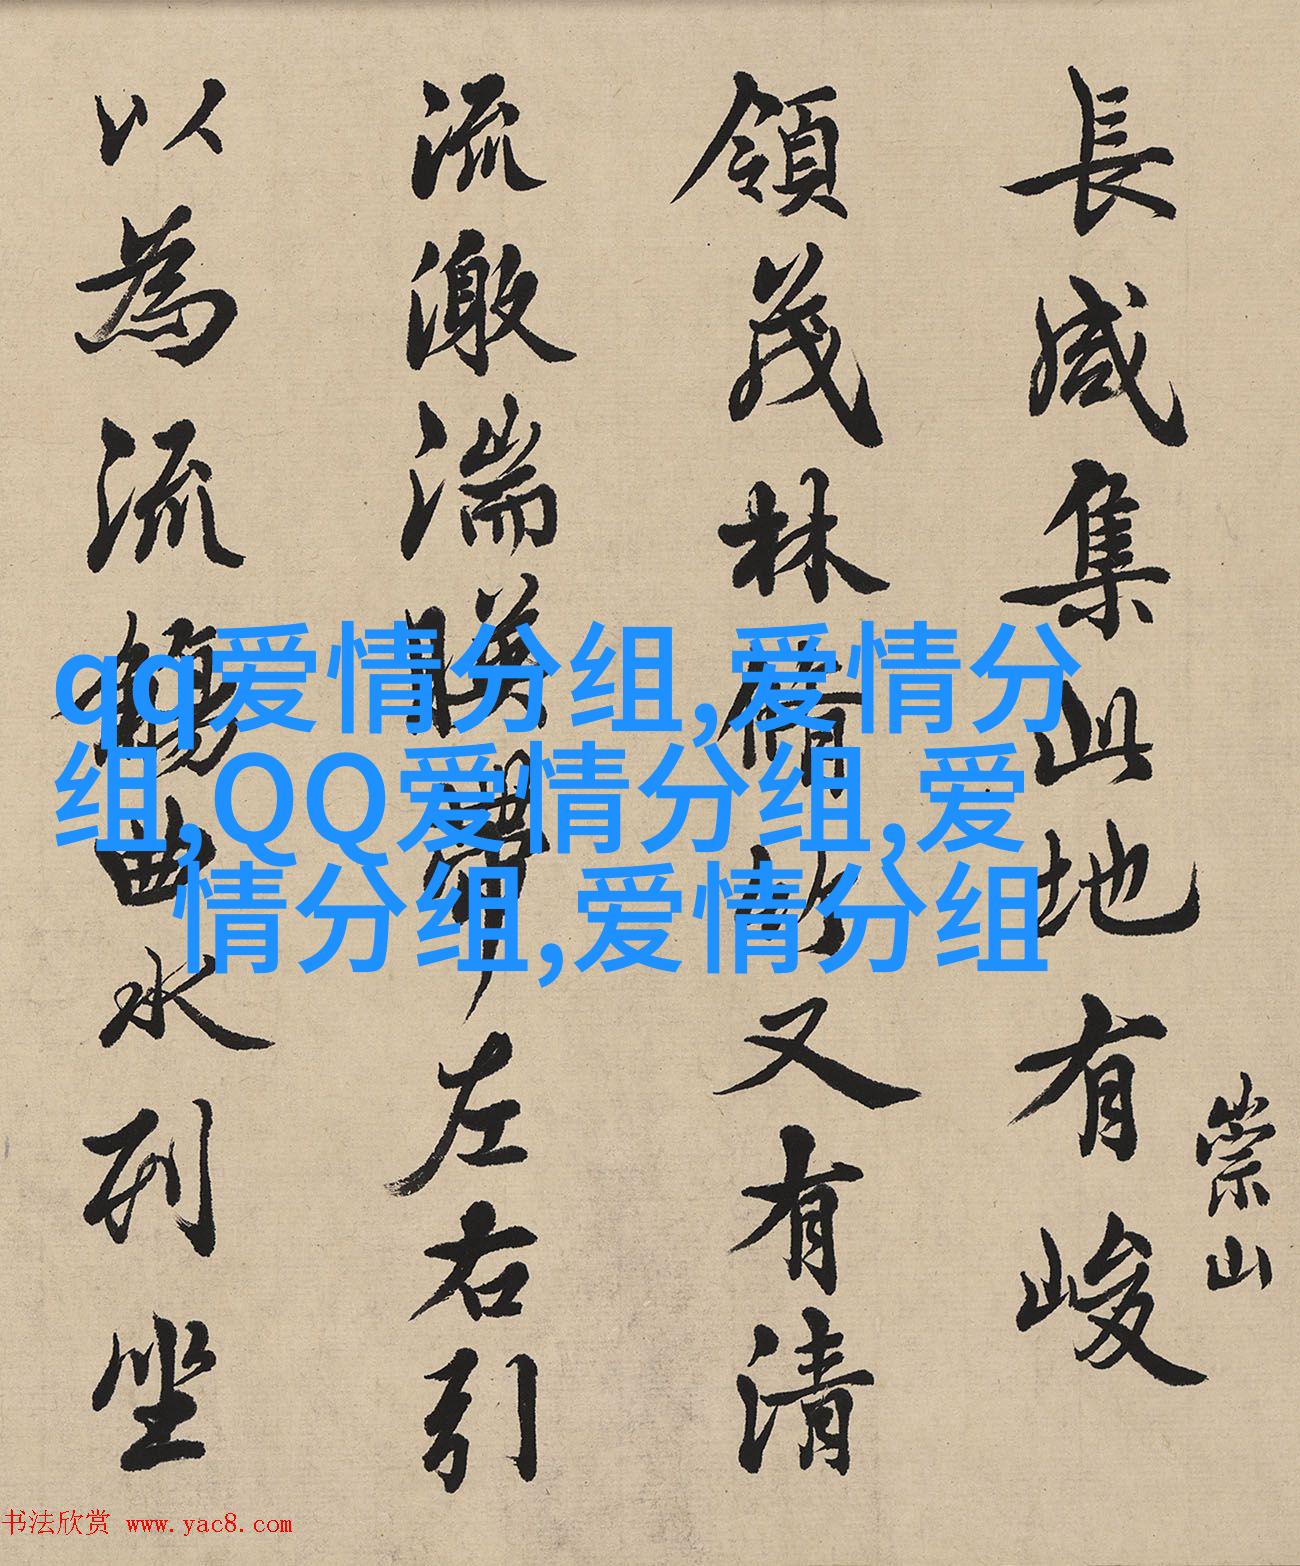 長咸集此地有峻
崇山
領茂林脩竹又有清
流激湍暎帶左右引
以為流觴曲水列坐
qq爱情分组,爱情分
组,QQ爱情分组,爱
情分组,爱情分组
书法欣赏 www.yac8.com